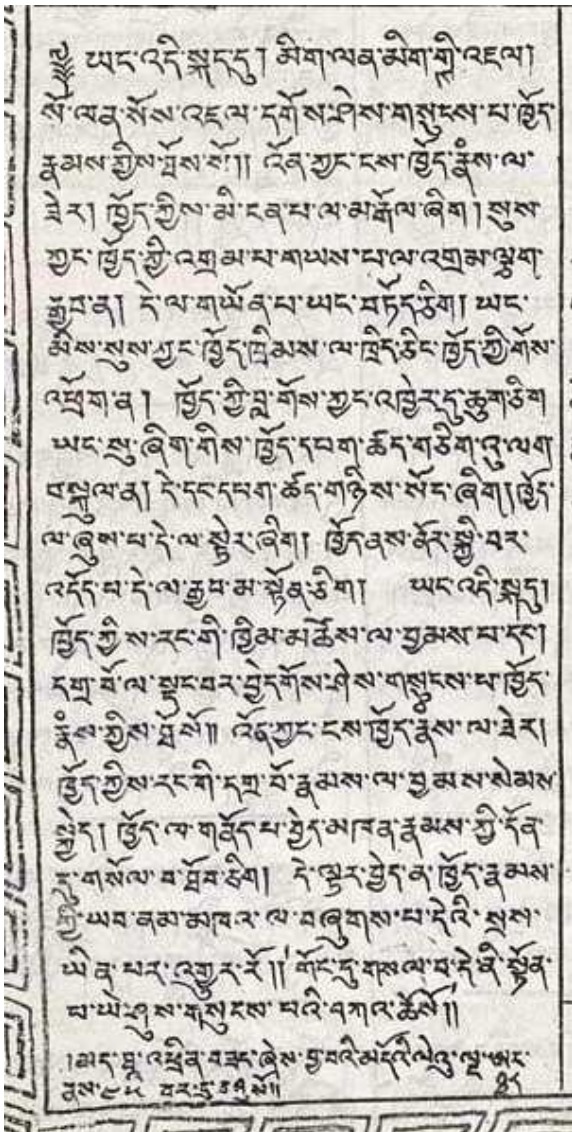 ༄༅། ཡང་འདི་སྐད་དུ། མིག་ལན་མིག་གི་འཇལ།
སོ་ལན་སོས་འཇལ་དགོས་ཤེས་གསུངས་པ་ཁྱོད་
རྣམས་ཀྱིས་ཐོས་སོ།། འོན་ཀྱང་ངས་ཁྱོད་རྣཾས་ལ་
ཟེར། ཁྱོད་ཀྱིས་མི་ངན་པ་ལ་མ་རྒོལ་ཞིག །སུས་
ཀྱང་ཁྱོད་ཀྱི་འགྲམ་པ་གཡས་པ་ལ་འགྲམ་ལྕག་
རྒྱབ་ན། དེ་ལ་གཡོན་པ་ཡང་བཏོད་ཅིག། ཡང་
སུས་ཀྱང་ཁྱོད་ཁྲིམས་ལ་ཁྲིད་ཅིང་ཁྱོད་ཀྱི་གོས་
འཕྲོག་ན། ཁྱོད་ཀྱི་བླ་གོས་ཀྱང་འཁྱེར་དུ་ཆུག་ཅིག
ཡང་སུ་ཞིག་གིས་ཁྱོད་དཔག་ཚད་གཅིག་འུ་ལག
བསྐུལ་ན། དེ་དང་དཔག་ཚད་གཉིས་སོང་ཞིག། ཁྱོད་
ལ་ཞུས་པ་དེ་ལ་སྟེར་ཞིག། ཁྱོད་ནས་ནོར་སྐྱི་བར་
འདོད་པ་དེ་ལ་རྒྱབ་མ་སྟོན་ཅིག། ཡང་འདི་སྐད་དུ།
ཁྱོད་ཀྱིས་རང་གི་ཁྱིམ་མཚེས་ལ་བྱམས་པ་དང༌།
དགྲ་བོ་ལ་སྡང་བར་བྱེད་གོས་ཤེས་གསུངས་པ་ཁྱོད་
རྣཾས་ཀྱིས་ཐོས་སོ༎ འོན་ཀྱང་ངས་ཁྱོད་རྣམས་ལ་ཟེར།
ཁྱོད་ཀྱིས་རང་གི་དགྲ་བོ་རྣམས་ལ་བྱམས་སེམས་
སྐྱེད། ཁྱོད་ལ་གནོད་པ་བྱེད་མཁན་རྣམས་ཀྱི་དོན་
དུ་གསོལ་བ་ཐོབ་ཅིག། དེ་ལྟར་བྱེད་ན་ཁྱོད་རྣམས་
ཡབ་ནམ་མཁར་ལ་བཞུགས་པ་དེའི་སྲས་
ཡིན་པར་འགྱུར་རོ།། གོང་དུ་གསལ་བ་དེ་ནི་སྟོན་
པ་ཡེ་ཤུས་གསུངས་པའི་བཀའ་ཆོསོ།།
།མད་ཐཱ་འཕྲིན་བཟང་ཞེས་བྱ་བའི་མདོའི་ལེའུ་ལྔ་
ནས་ བར་དུ་